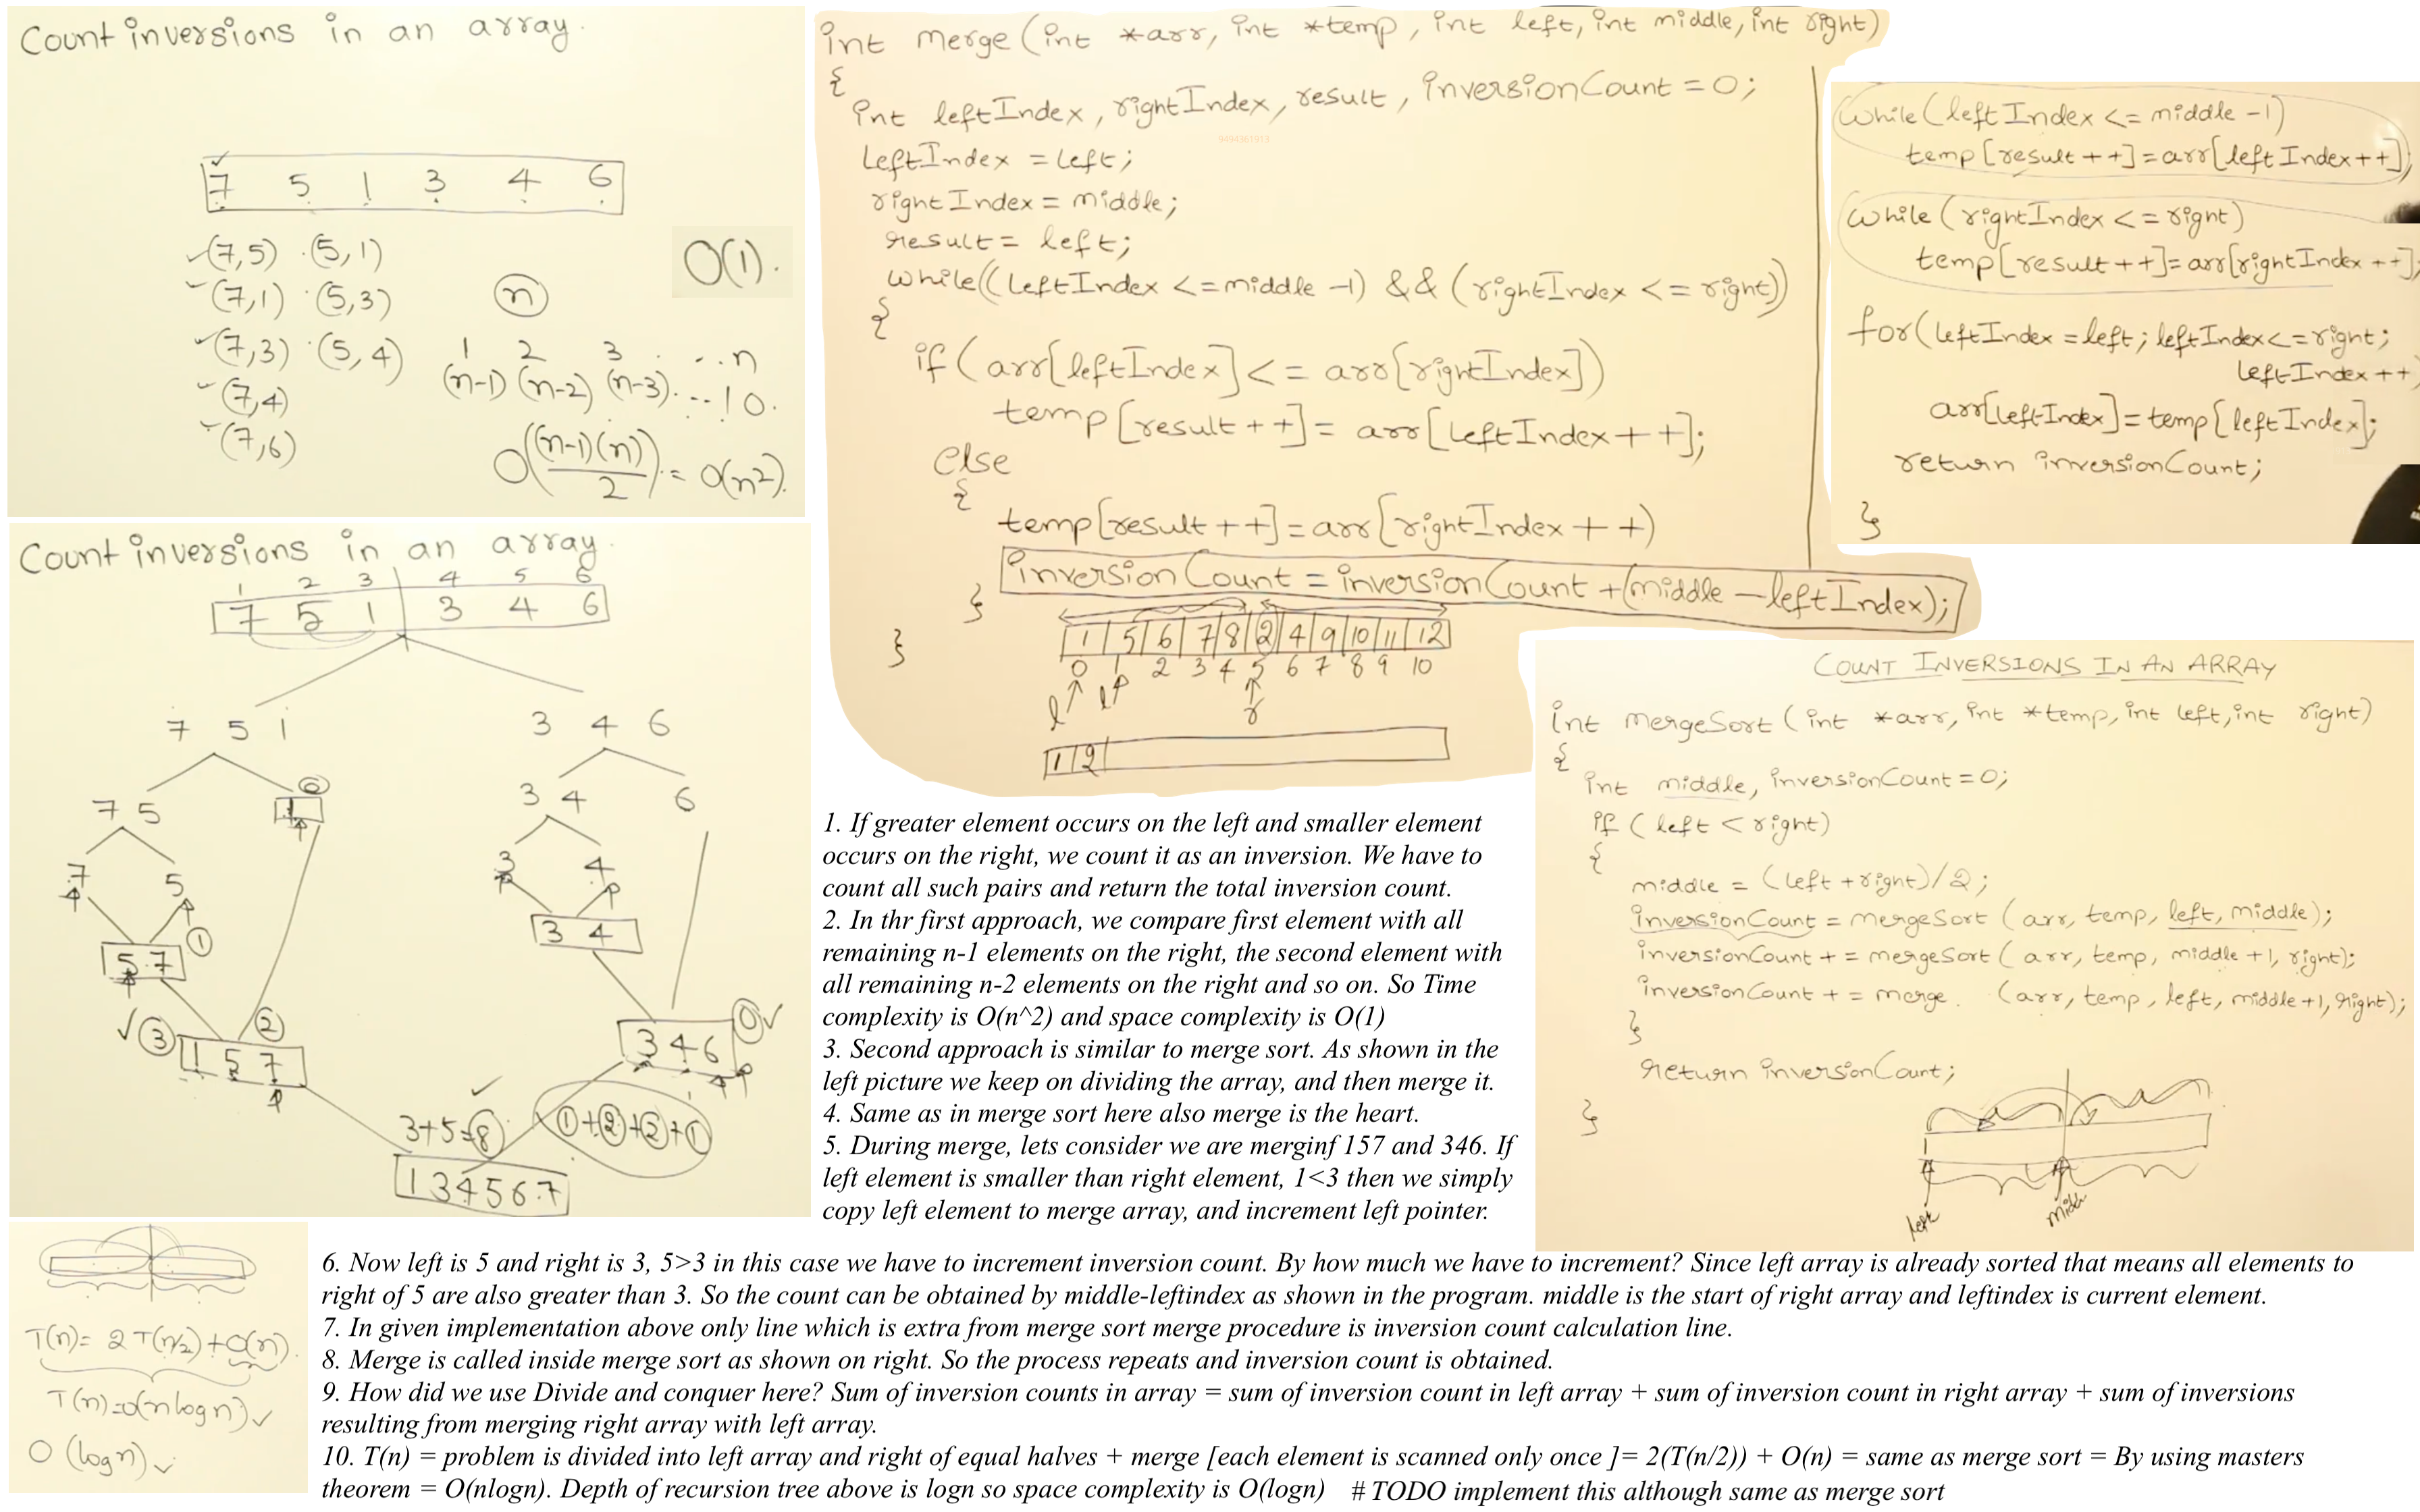 Count inversions in an array.
7 5 1 3 4 6
(7,5) (5,1)
(7,1) (5,3)
(7,3) (5,4)
(7,4)
(7,6)
O(1).
n
1 2 3 . . . n
(n-1) (n-2) (n-3). . . . 1 0.
O((n-1)(n)/2) = O(n2).
Count inversions in an array.
1 2 3 4 5 6
7 5 1 3 4 6
7 5 1 3 4 6
7 5 3 4 6
7 5 3 4
1
5 7 3 4
3 2 0
1 5 7 3 4 6
3+5=8 1+2+2+1
1 3 4 5 6 7
T(n)= 2T(n/2)+O(n).
T(n)=O(nlogn)
O(logn)
int merge(int *arr, int *temp, int left, int middle, int right)
{
int leftIndex, rightIndex, result, inversionCount = 0;
9494361913
leftIndex = left;
rightIndex = middle;
result = left;
while((leftIndex <= middle -1) && (rightIndex <= right))
{
if(arr[leftIndex] <= arr[rightIndex])
temp[result++] = arr[leftIndex++];
else
{
temp[result++] = arr[rightIndex++)
inversionCount = inversionCount +(middle - leftIndex);
}
}
1 5 6 7 8 2 4 9 10 11 12
0 1 2 3 4 5 6 7 8 9 10
l l r
1 2
while(leftIndex <= middle -1)
temp[result++]=arr[leftIndex++];
while(rightIndex <= right)
temp[result++]=arr[rightIndex++];
for(leftIndex = left; leftIndex <= right;
leftIndex++)
arr[leftIndex]=temp[leftIndex];
return inversionCount;
}
COUNT INVERSIONS IN AN ARRAY
int mergeSort(int *arr, int *temp, int left, int right)
{
int middle, inversionCount=0;
if(left < right)
{
middle = (left+right)/2;
inversionCount = mergeSort(arr, temp, left, middle);
inversionCount += mergeSort(arr, temp, middle+1, right);
inversionCount += merge (arr, temp, left, middle+1, right);
}
return inversionCount;
}
left
1. If greater element occurs on the left and smaller element
occurs on the right, we count it as an inversion. We have to
count all such pairs and return the total inversion count.
2. In thr first approach, we compare first element with all
remaining n-1 elements on the right, the second element with
all remaining n-2 elements on the right and so on. So Time
complexity is O(n^2) and space complexity is O(1)
3. Second approach is similar to merge sort. As shown in the
left picture we keep on dividing the array, and then merge it.
4. Same as in merge sort here also merge is the heart.
5. During merge, lets consider we are merginf 157 and 346. If
left element is smaller than right element, 1<3 then we simply
copy left element to merge array, and increment left pointer.
6. Now left is 5 and right is 3, 5>3 in this case we have to increment inversion count. By how much we have to increment? Since left array is already sorted that means all elements to
right of 5 are also greater than 3. So the count can be obtained by middle-leftindex as shown in the program. middle is the start of right array and leftindex is current element.
7. In given implementation above only line which is extra from merge sort merge procedure is inversion count calculation line.
8. Merge is called inside merge sort as shown on right. So the process repeats and inversion count is obtained.
9. How did we use Divide and conquer here? Sum of inversion counts in array = sum of inversion count in left array + sum of inversion count in right array + sum of inversions
resulting from merging right array with left array.
10. T(n) = problem is divided into left array and right of equal halves + merge [each element is scanned only once ]= 2(T(n/2)) + O(n) = same as merge sort = By using masters
theorem = O(nlogn). Depth of recursion tree above is logn so space complexity is O(logn) # TODO implement this although same as merge sort